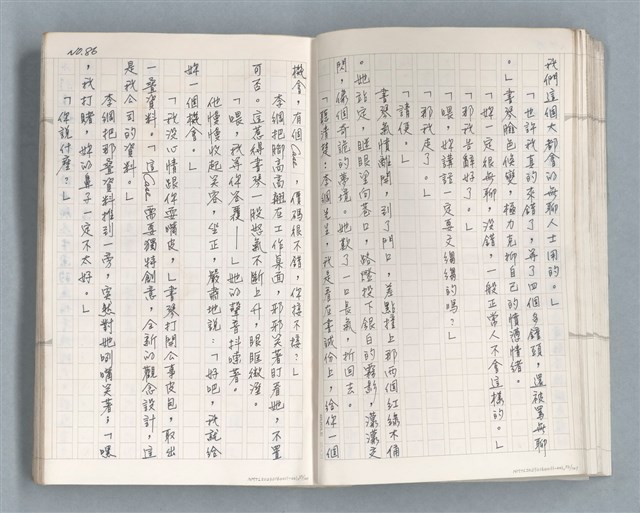 我們這個大都會的無聊人士用的。」
「也許我真的來錯了，等了四個多鐘頭，還被罵無聊
。」書琴臉色倏變，極力克抑自己的憤懣情緒。
「妳一定很無聊，沒錯，一般正常人不會這樣的。」
「喂，妳講話一定要文縐縐的嗎？」
「那我告辭好了。」
「那我走了。」
「請便。」
書琴氣憤離開，到了門口，差點撞上那兩個紅綠木偶
。她站定，睚眼望向巷口，路燈投下銀白的霧影，濛濛交
閃，像個奇詭的夢境。她歎了一口長氣，折回去。
「聽清楚：李綱先生，我是看在李誠份上，給你一個
機會，有個Case，價碼很不錯，你接不接？」
李綱把腳高高翹在工作桌面，邪邪笑著盯看她，不置
可否。這惹得書琴一股怒氣不斷上升，眼眶微溼。
「喂，我等你答覆——」她的聲音抖嗦著。
他慢慢收起笑容，坐正，嚴肅地說：「好吧，我就給
妳一個機會。」
「我沒心情跟你耍嘴皮，」書琴打開公事皮包，取出
一疊資料。「這Case需要獨特創意，全新的觀念設計，這
是我公司的資料。」
李綱把那疊資料推到一旁，突然對她咧嘴笑著；「嘿
，我打賭，妳的鼻子一定不太好。」
「你說什麼？」
NO.86